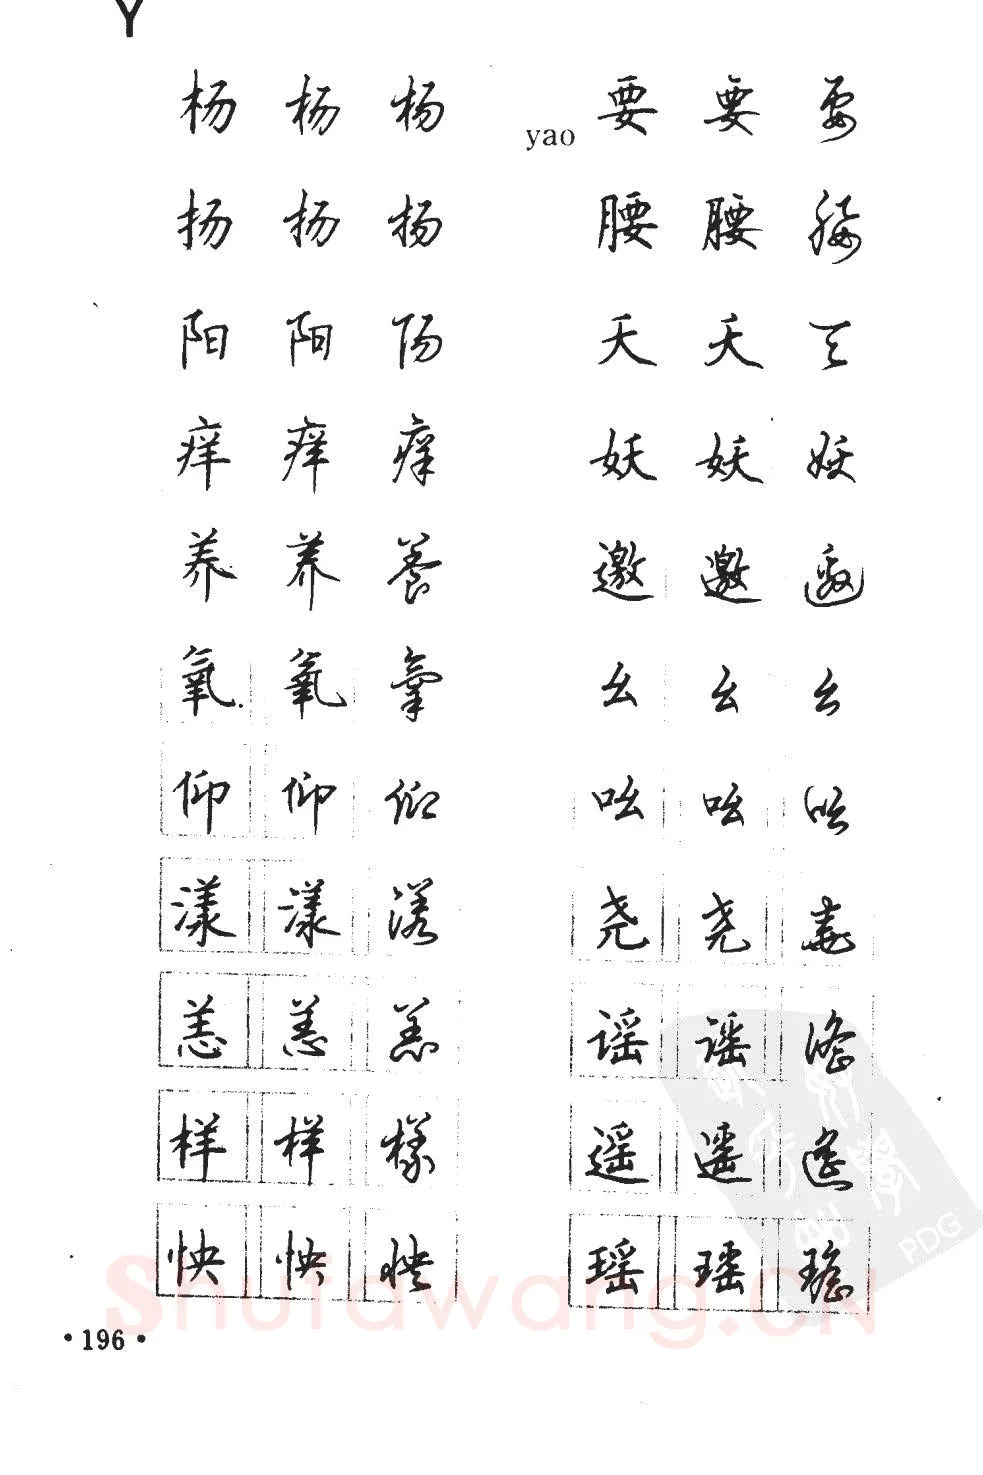 Y
杨 杨 杨
扬 扬 扬
阳 阳 阳
痒 痒 痒
养 养 養
氧 氧 氧
仰 仰 仰
漾 漾 漾
恙 恙 恙
样 样 樣
怏 怏 怏
yao
要 要 要
腰 腰 腰
夭 夭 夭
妖 妖 妖
邀 邀 邀
幺 幺 幺
吆 吆 吆
尧 尧 堯
谣 谣 謠
遥 遥 遥
瑶 瑶 瑶
·196·
Shufawang.CN
PDG